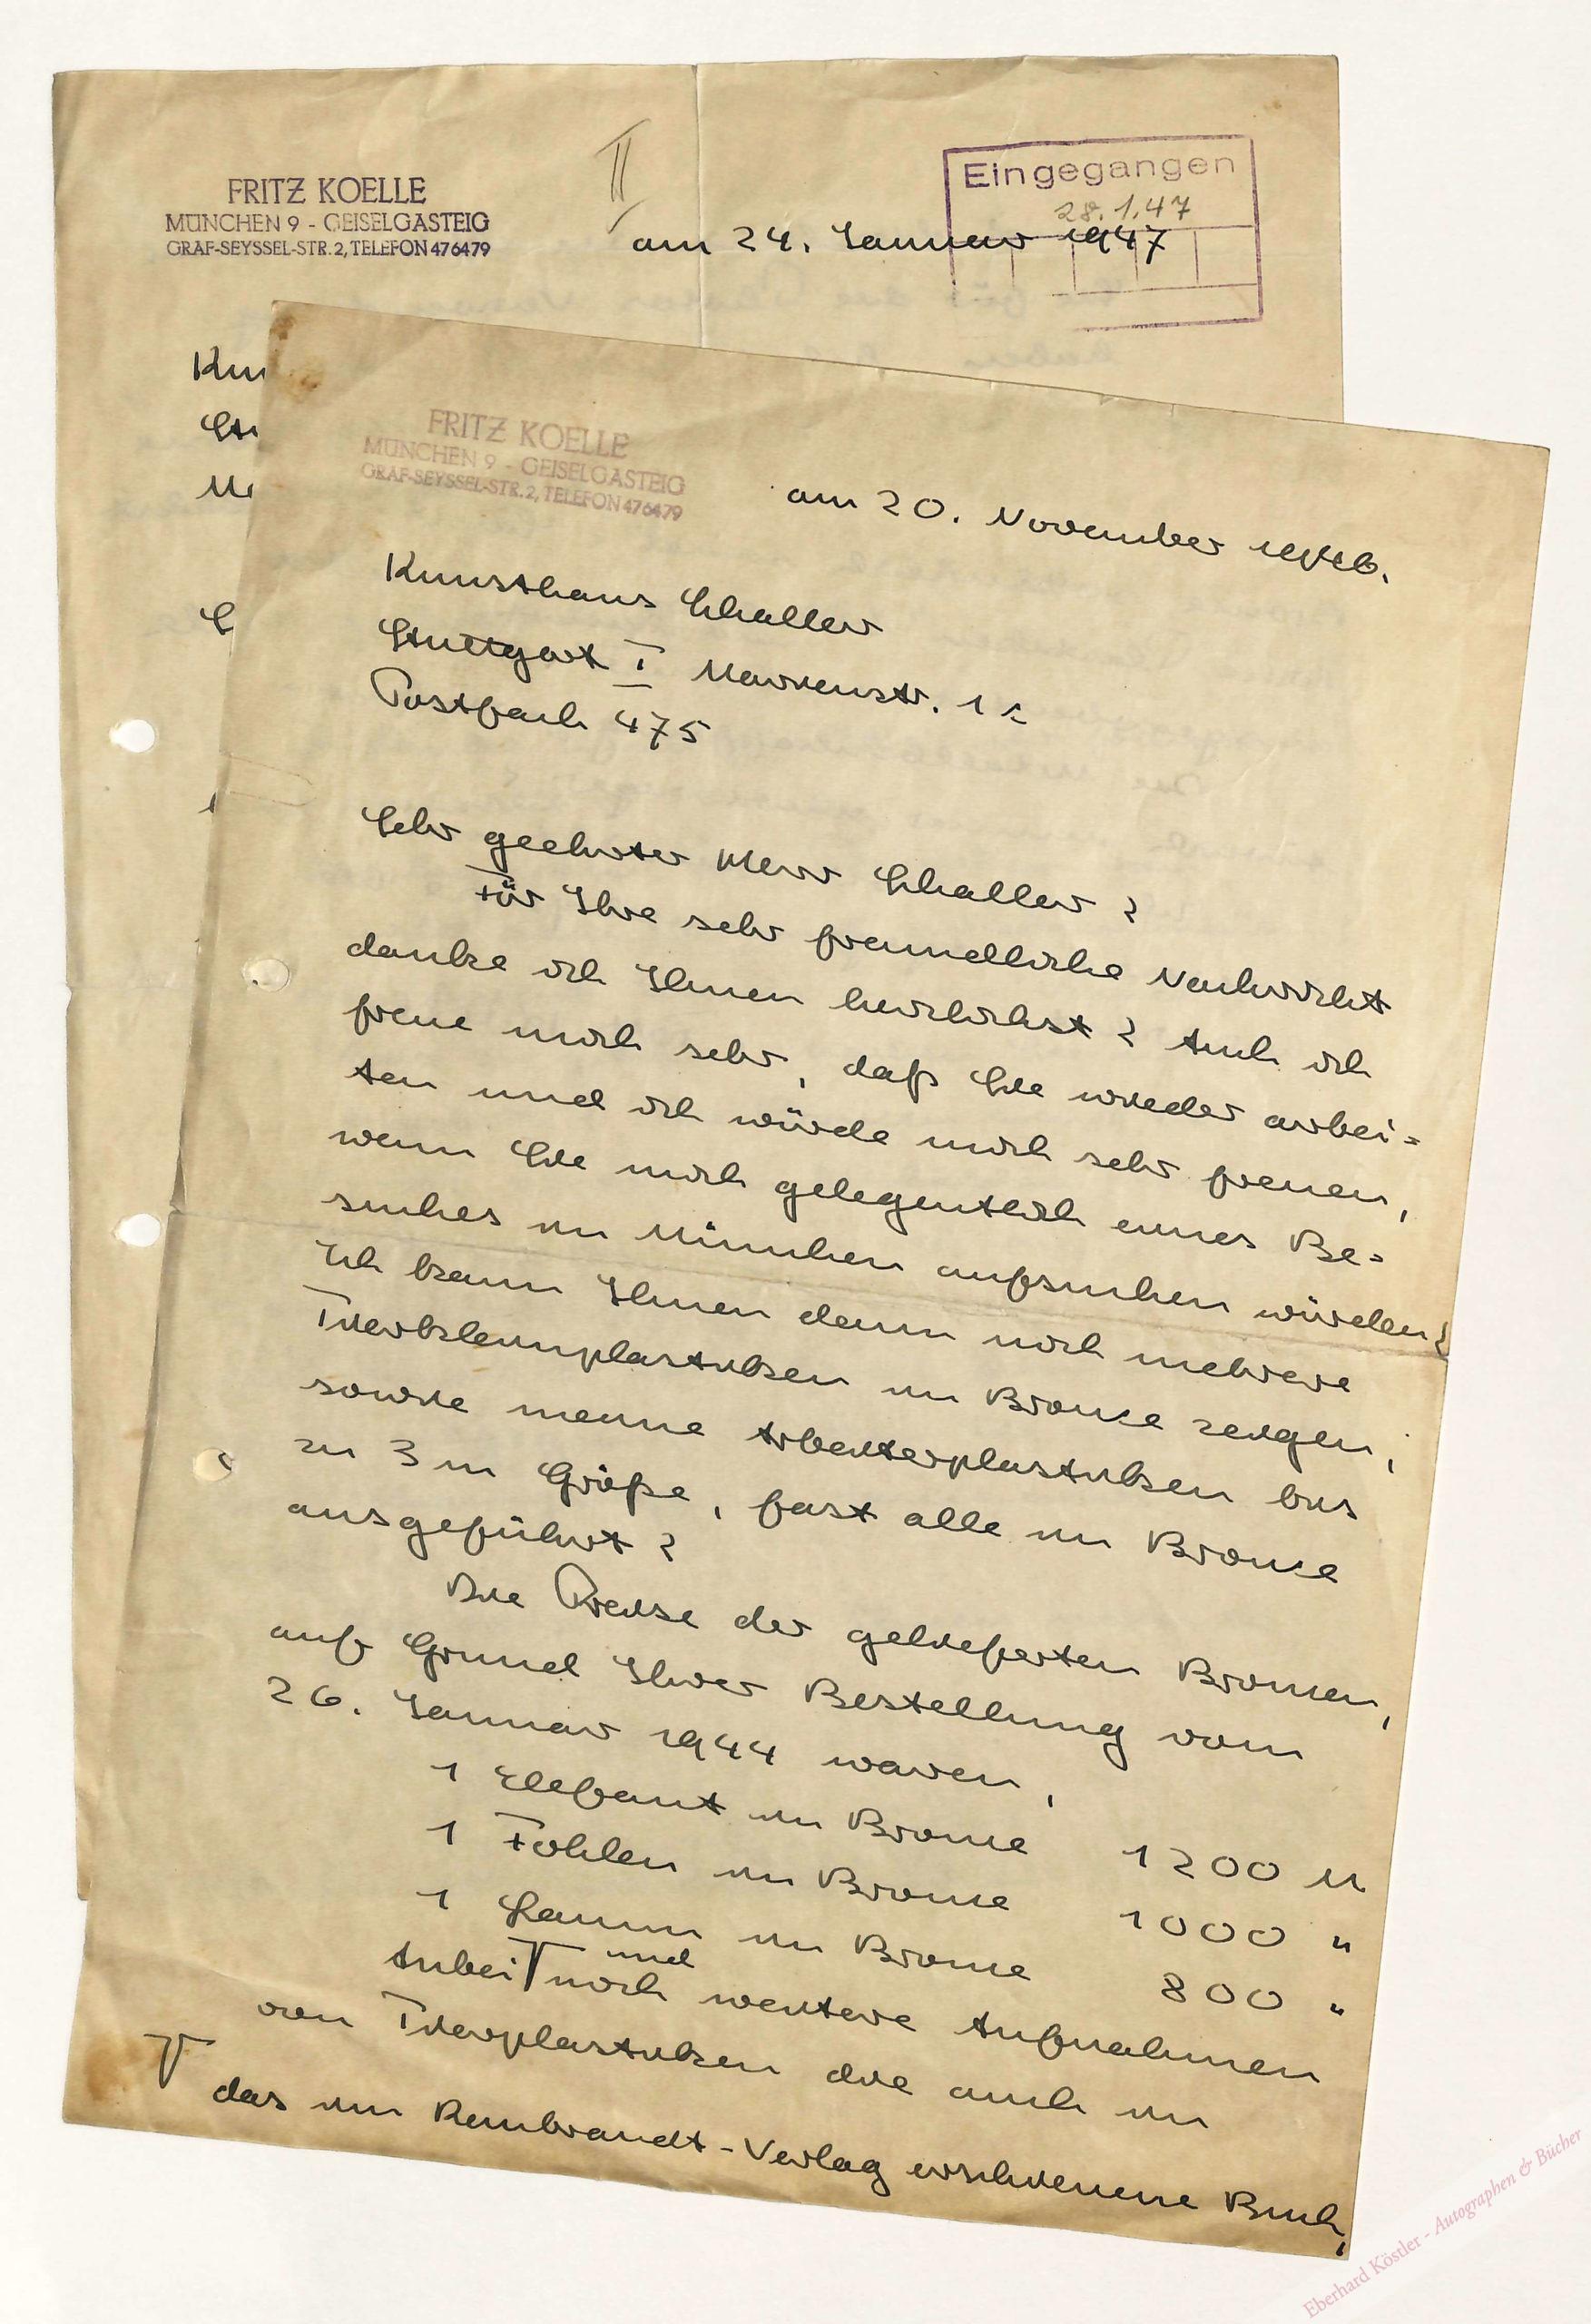 FRITZ KOELLE
MÜNCHEN 9 - GEISELGASTEIG
GRAF-SEYSSEL-STR. 2, TELEFON 476479
II
Eingegangen
28.1.47
am 24. Januar 1947
FRITZ KOELLE
MÜNCHEN 9 - GEISELGASTEIG
GRAF-SEYSSEL-STR. 2, TELEFON 476479
am 20. November 1946.
Kunsthaus Schaller
Stuttgart I Marienstr. 1
Postfach 475
Sehr geehrter Herr Schaller!
Für Ihre sehr freundliche Nachricht
danke ich Ihnen herzlichst! Auch ich
freue mich sehr, daß Sie wieder arbei=
ten und ich würde mich sehr freuen,
wenn Sie mich gelegentlich eines Be=
suches in München aufsuchen würden!
Ich kann Ihnen dann noch mehrere
Tierkleinplastiken in Bronce zeigen,
sowie meine Arbeiterplastiken bis
zu 3 m Größe, fast alle in Bronce
ausgeführt!
Die Preise der gelieferten Broncen,
auf Grund Ihrer Bestellung vom
26. Januar 1944 waren,
1 Elefant in Bronce 1200 M
1 Fohlen in Bronce 1000 "
1 Lamm in Bronce 800 "
und
Anbei noch weitere Aufnahmen
von Tierplastiken die auch in
das im Rembrandt-Verlag erschienene Buch,
Eberhard Köstler - Autographen & Bücher